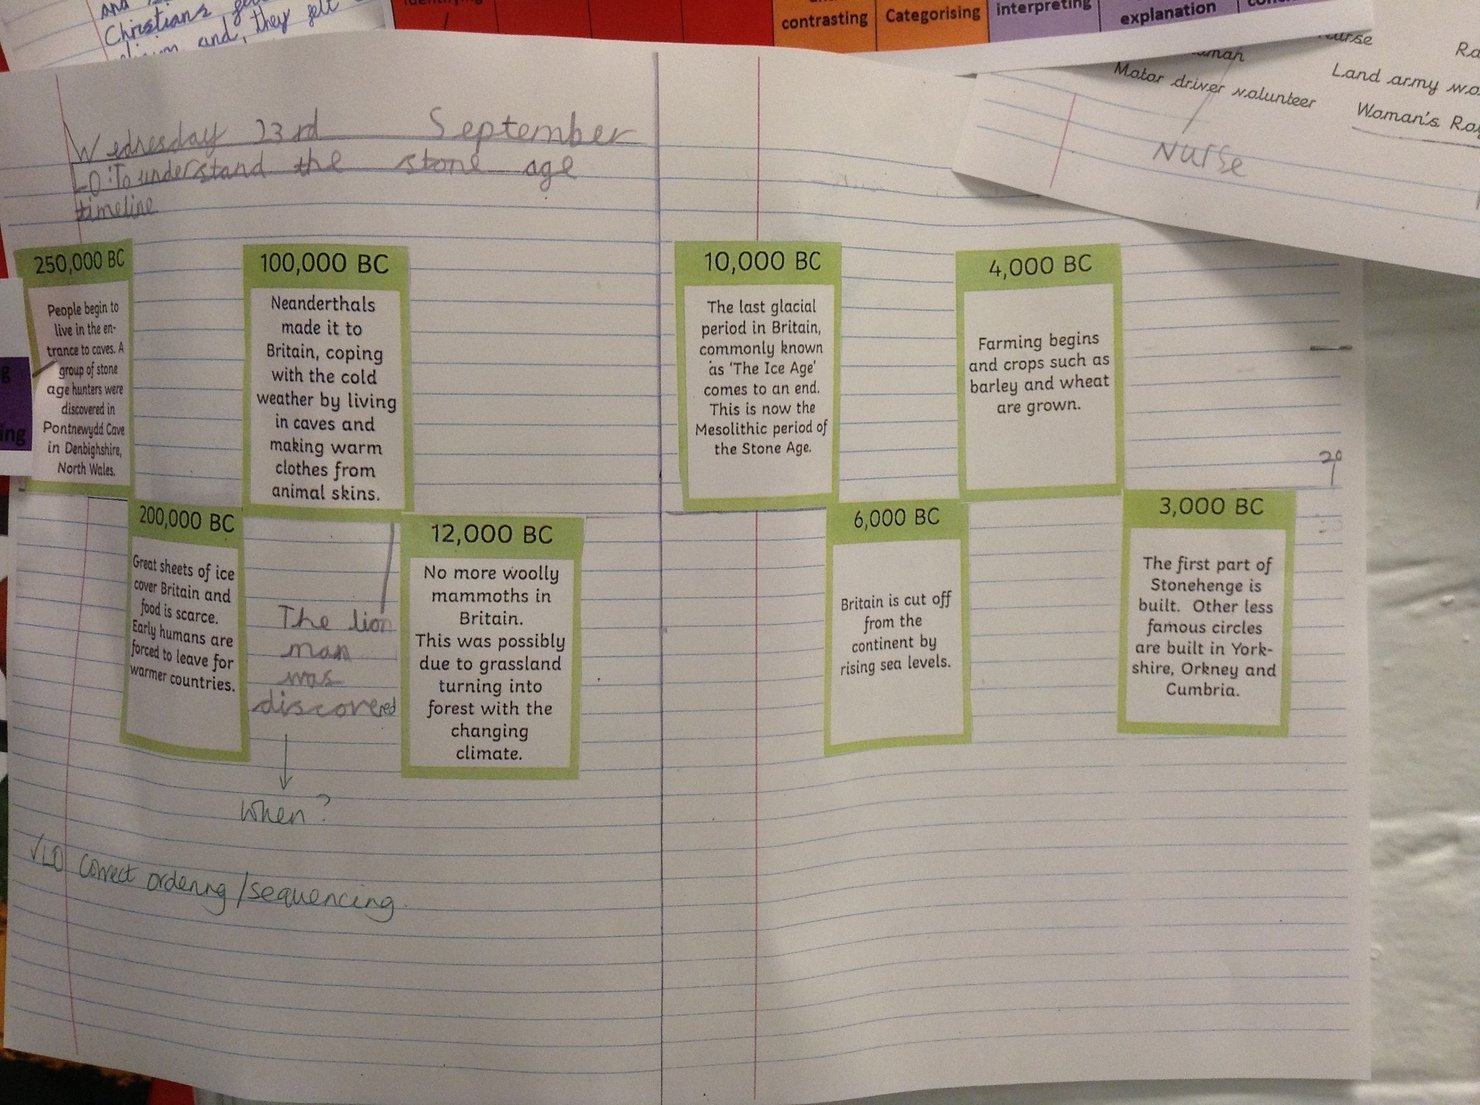 Christians
and, they felt
contrasting
Categorising
interpreting
explanation
Nurse
Motor driver volunteer
Land army
Woman's
Nurse
Wednesday 23rd September
LO: To understand the stone age
timeline
250,000 BC
People begin to
live in the en-
trance to caves. A
group of stone
age hunters were
discovered in
Pontnewydd Cave
in Denbighshire,
North Wales.
200,000 BC
Great sheets of ice
cover Britain and
food is scarce.
Early humans are
forced to leave for
warmer countries.
100,000 BC
Neanderthals
made it to
Britain, coping
with the cold
weather by living
in caves and
making warm
clothes from
animal skins.
The lion
man
was
discovered
When?
12,000 BC
No more woolly
mammoths in
Britain.
This was possibly
due to grassland
turning into
forest with the
changing
climate.
10,000 BC
The last glacial
period in Britain,
commonly known
as 'The Ice Age'
comes to an end.
This is now the
Mesolithic period of
the Stone Age.
6,000 BC
Britain is cut off
from the
continent by
rising sea levels.
4,000 BC
Farming begins
and crops such as
barley and wheat
are grown.
3,000 BC
The first part of
Stonehenge is
built. Other less
famous circles
are built in York-
shire, Orkney and
Cumbria.
√LO Correct ordering/sequencing.